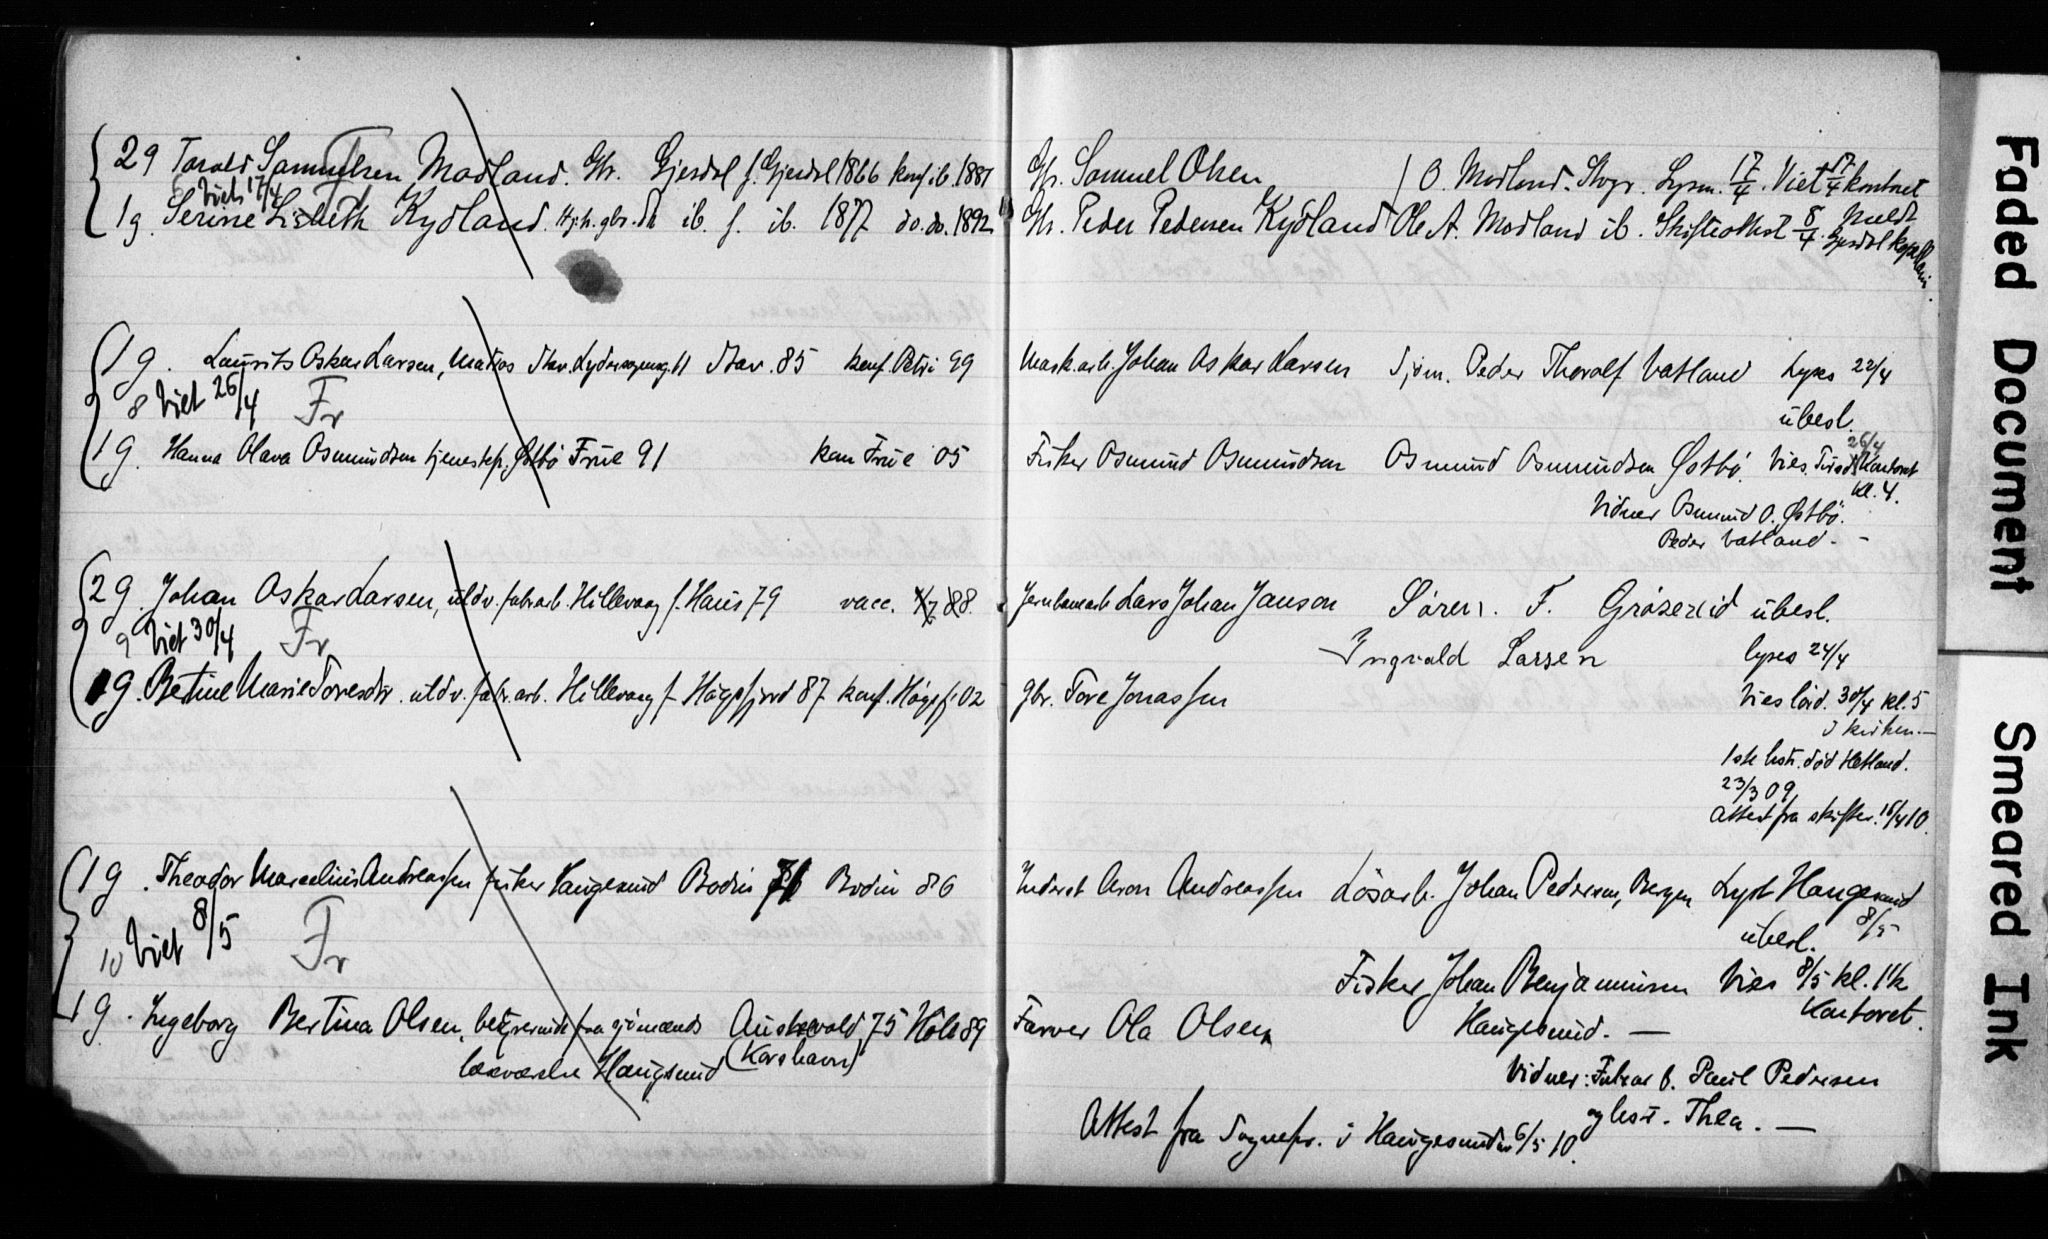 29 Torald Samuelsen Modland. Gbr. Gjesdal f. Gjesdal 1866 konf. ib. 1881
6 Viet 17/4 T
1g. Serine Lisbeth Kydland. Hj.h. gbr. dtr ib. f. ib. 1877 do. do. 1892
1g. Laurits Oskar Larsen, Matros Stav. Stav. 85 konf. Petri 99
8 Viet 26/4 Fr
1g. Hanna Olava Osmundsen tjenestep. Østbö Frue 91 kon Frue 05
2g. Johan Oskar Larsen, uldv. fabrarb. Hillevaag f. Haus 79 vacc. 88.
9 Viet 30/4 Fr
1g. Bertine Marie Toresdtr. uldv. fabr. arb. Hillevaag f. Högsfjord 87 konf. Högsfj 02
1g. Theodor Marcelius Andreassen fisker Haugesund Bodin Bodin 86
10 Viet 8/5 Fr
1g. Ingeborg Bertina Olsen, fra Austevold 75 Höle 89
Haugsund (Korshavn)
Gbr. Samuel Olsen / O. Modland. Lysn. 17/4. Viet 17/4 kontoret
Gbr. Peder Pedersen Kydland Ole A. Modland ib. Skifteattest 8/4. Meldt Gjesdal
Mask.arb. Johan Oskar Larsen Sjöm. Peder Thoralf Vatland Lyses 22/4
übesl.
Fisker Osmund Osmundsen Osmund Osmundsen Østbö. Vies Tirsd. 26/4 Kontoret
Kl. 4.
Vidner Osmund O. Østbö.
Peder Vatland. -
Jernbanearb. Lars Johan Janson Sören. F. Gröseriid übesl.
Ingvald Larsen lyses 24/4
gbr. Tore Jonassen Vies lörd. 30/4 kl. 5
i kirken. -
1ste hstr. död Hetland.
23/3 09
Attest fra skifter. 16/4 10.
Inderst Aron Andreassen Lösarb. Johan Pedersen, Bergen Lyst Haugesund
8/5
übesl.
Fisker Johan Benjaminsen Vies 8/5 kl. 1½
Farver Ola Olsen Haugesund. - Kontoret.
Vidner: Fabrarb. Paul Pedersen
og hst. Thea. -
Attest fra Sognepr. i Haugesund 6/5 10.
Faded Document
Smeared Ink